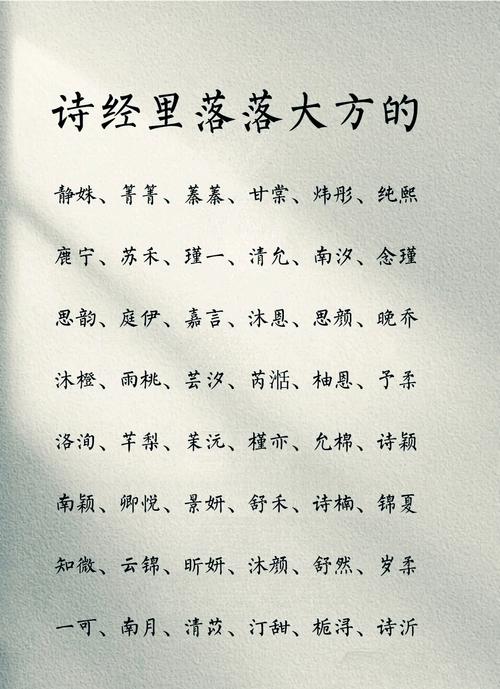 诗经里落落大方的
静姝、菁菁、蓁蓁、甘棠、炜彤、纯熙
鹿宁、苏禾、瑾一、清允、南汐、念瑾
思韵、庭伊、嘉言、沐恩、思颜、晚乔
沐橙、雨桃、芸汐、芮湉、柚恩、予柔
洛洵、芊梨、茉沅、槿亦、允棉、诗颖
南颖、卿悦、景妍、舒禾、诗楠、锦夏
知微、云锦、昕妍、沐颜、舒然、岁柔
一可、南月、清苡、汀甜、栀浔、诗沂